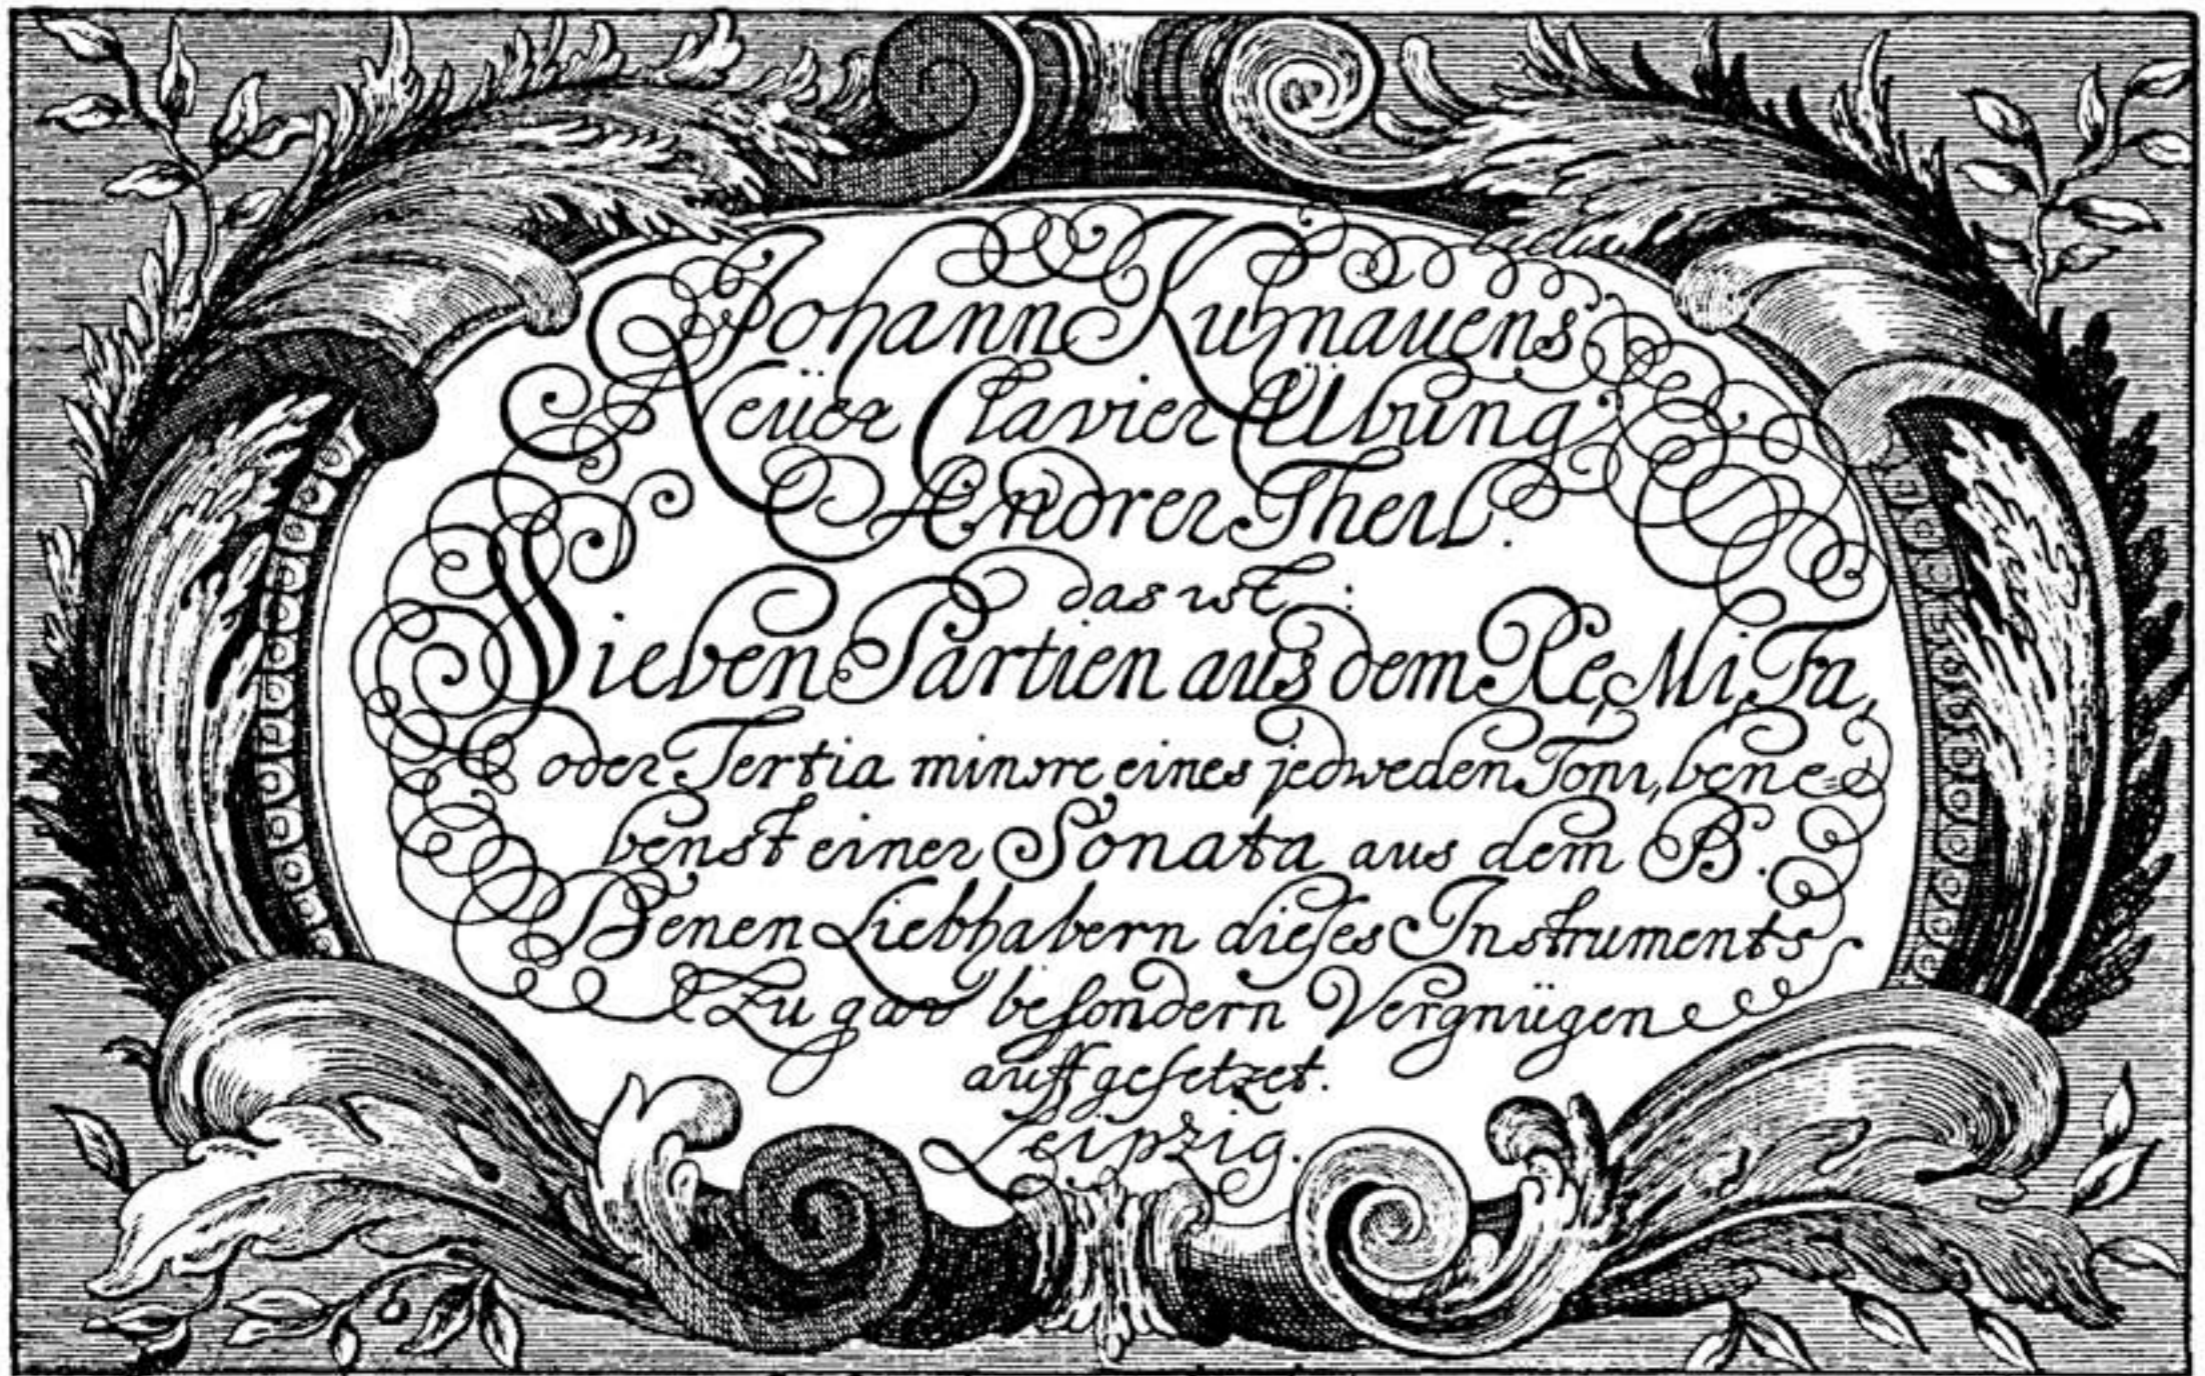 Johann Kuhnauens
Neüer Clavier Übung
Andrer Theil.
das ist:
Sieben Partien aus dem Re, Mi, Fa,
oder Tertia minore eines jedweden Toni, bene-
benst einer Sonata aus dem B.
Denen Liebhabern dieſes Instruments
Zu gar beſondern Vergnügen
auffgeſetzet.
Leipzig.